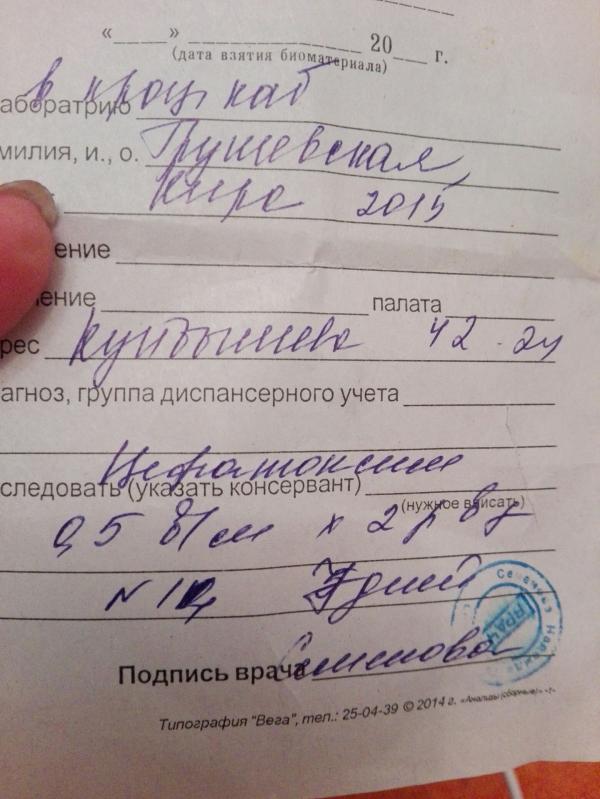 «____» ____________ 20___ г.
(дата взятия биоматериала)
аборатрию в проц. каб
милия, и., о. Грушевская,
Кира 2015
ение
ление палата
рес Куйбышева 42-24
агноз, группа диспансерного учета
Цефотоксим
следовать (указать консервант)
(нужное вписать)
0,5 в/м х 2 р в д
N 14, 7 дней
Подпись врача Семенова
ВРАЧ
Типография "Вега", тел.: 25-04-39 © 2014 г. «Анализы (сборные)»